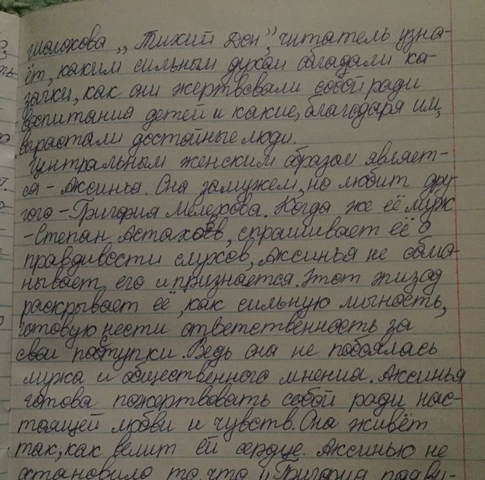 Шолохова „Тихий Дон", читатель узна-
ёт, каким сильным духом обладали ка-
зачки, как они жертвовали собой ради
воспитания детей и какие, благодаря им,
вырастали достойные люди.
Центральным женским образом являет-
ся - Аксинья. Она замужем, но любит дру-
гого - Григория Мелехова. Когда же её муж
- Степан Астахов, спрашивает её о
правдивости слухов, Аксинья не обма-
нывает его и признается. Этот эпизод
раскрывает её, как сильную личность,
готовую нести ответственность за
свои поступки. Ведь она не побоялась
мужа и общественного мнения. Аксинья
готова пожертвовать собой ради нас-
тоящей любви и чувств. Она живёт
так, как велит ей сердце. Аксинью не
остановило то, что у Григория